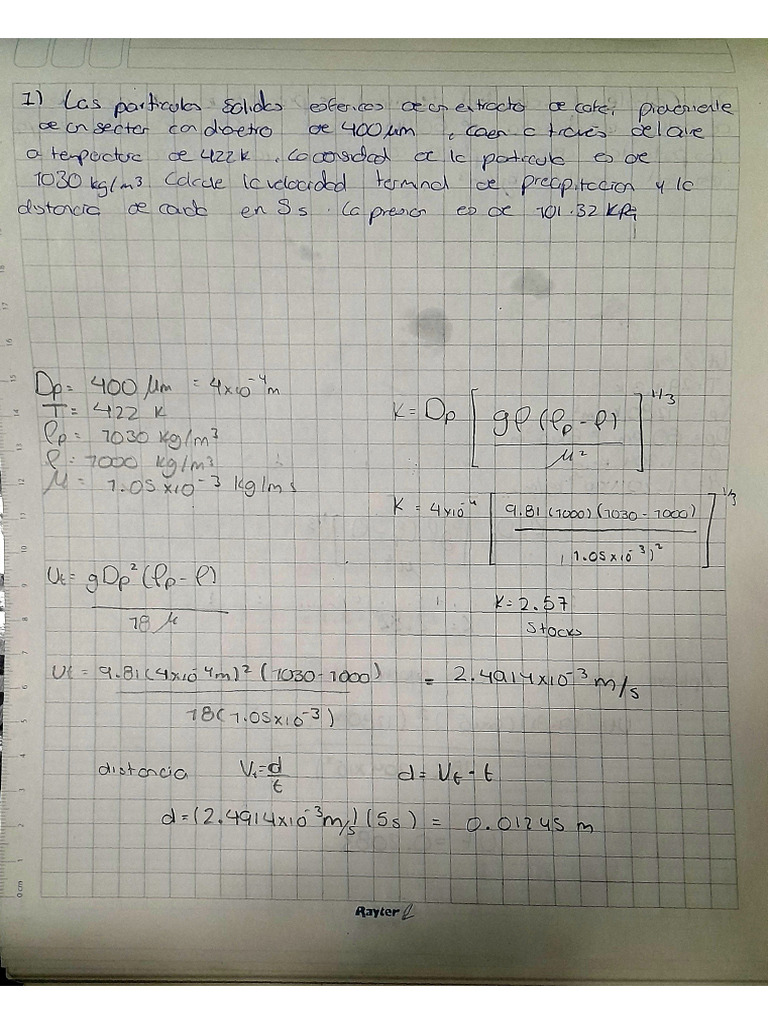 1) Las particulas solidas esfericas de un extracto de cafe, proveniente
de un secter con diametro de 400 μm, caen a traves del aire
a temperatura de 422 K. La densidad de la particula es de
1030 kg/m³ Calcule la velocidad terminal de precipitacion y la
distancia de caida en 5 s. La presion es de 101.32 KPa
Dp = 400 μm = 4x10⁻⁴ m
T = 422 K
ρp = 1030 kg/m³
ρ = 1000 kg/m³
μ = 1.05x10⁻³ kg/ms
K = Dp [gρ(ρp - ρ) / μ²]^1/3
K = 4x10⁻⁴ [9.81 (1000)(1030 - 1000) / (1.05x10⁻³)²]^1/3
K = 2.57
Stocks
Ut = gDp²(ρp - ρ) / 18 μ
Ut = 9.81 (4x10⁻⁴m)² (1030 - 1000) / 18 (1.05x10⁻³) = 2.4914x10⁻³ m/s
distancia Vt = d/t d = Vt - t
d = (2.4914x10⁻³ m/s) (5s) = 0.01245 m
Rayter
0 cm 1 2 3 4 5 6 7 8 9 10 11 12 13 14 15 16 17